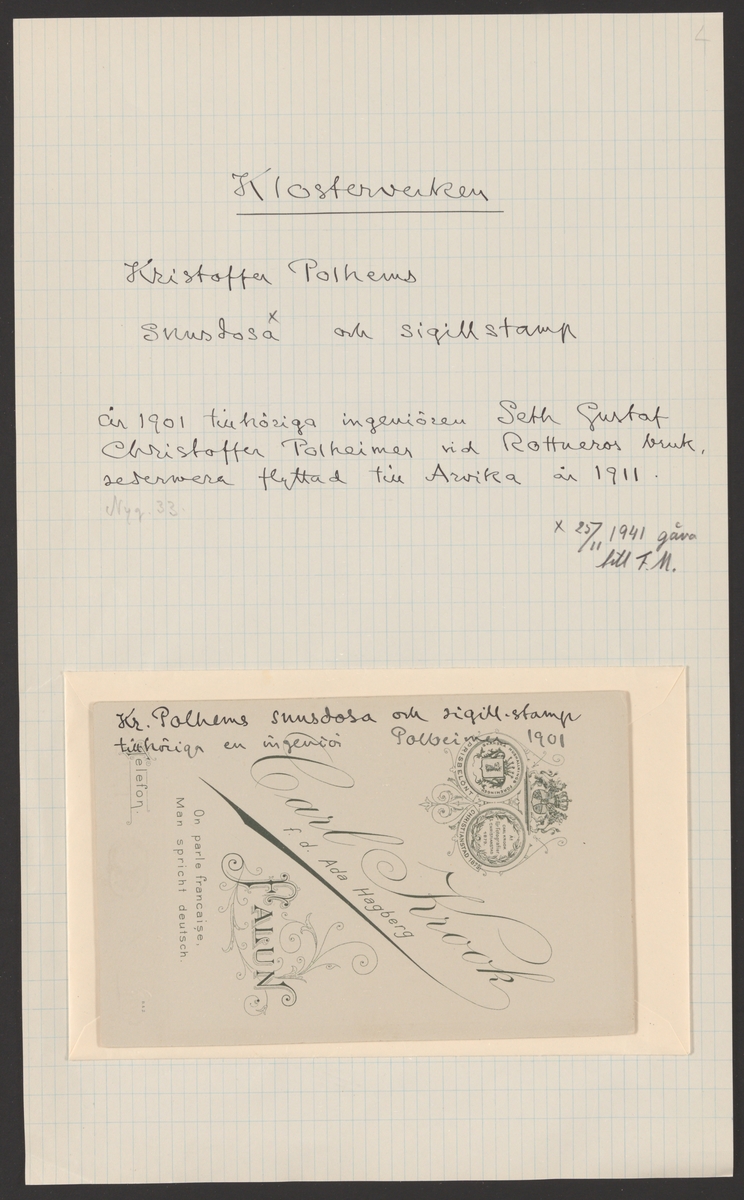 Klosterverken
Kristoffer Polhems
snusdosa x och sigillstamp
år 1901 tillhöriga ingeniören Seth Gustaf
Christoffer Polheimer vid Rottneros bruk,
sedermera flyttad till Arvika år 1911.
Nyq. 33.
x 25/11 1941 gåva
till F.M.
Kr. Polhems snusdosa och sigill-stamp
tillhöriga en ingeniör Polheimer 1901
Telefon.
On parle francaise.
Man spricht deutsch.
Carl Krook
f. d. Ada Hagberg
FALUN
PRISBELÖNT
CHRISTIANSTAD 1876